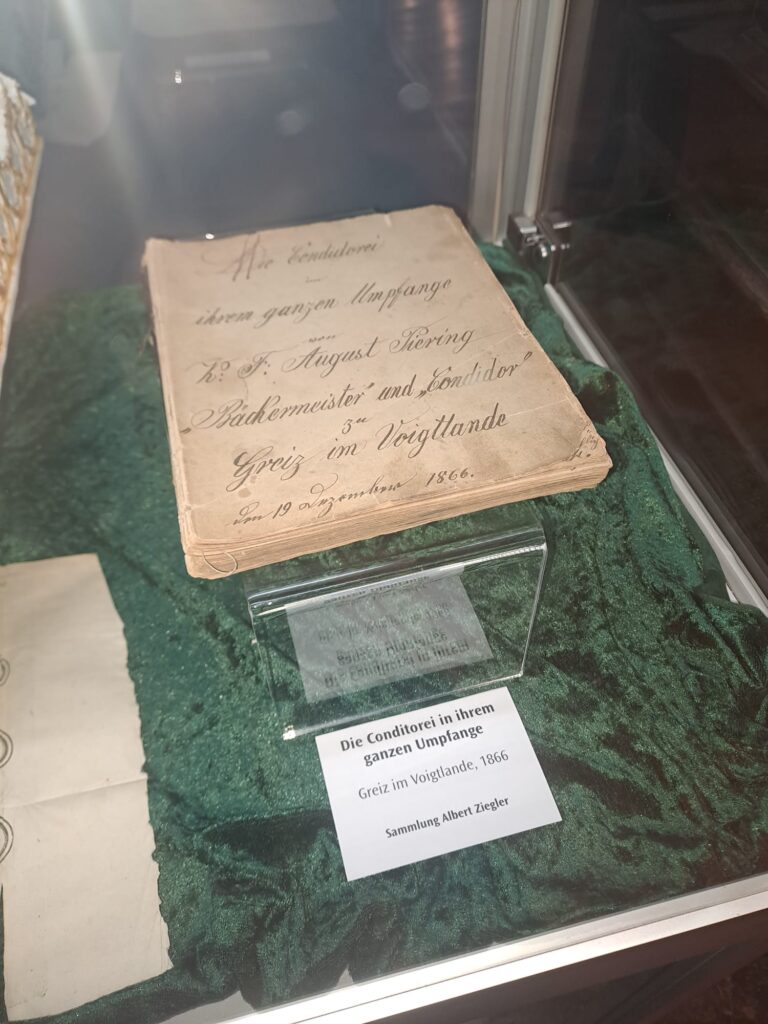 Die Conditorei
in
ihrem ganzen Umpfange
von
F. August Piering
„Bäckermeister" und „Condidor"
zu
Greiz im Voigtlande
den 19 Dezember 1866.
Die Conditorei in ihrem
ganzen Umpfange
Greiz im Voigtlande, 1866
Sammlung Albert Ziegler